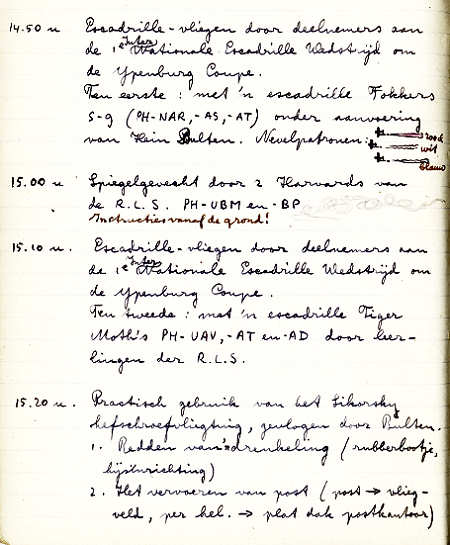 14.50 u Escadrille-vliegen door deelnemers aan
de 1e Inter Nationale Escadrille Wedstrijd om
de Ypenburg Coupe.
Ten eerste : met 'n escadrille Fokkers
S-9 (PH-NAR,-AS,-AT) onder aanvoering
van Hein Bulten. Nevelpatronen: rood
wit
blauw
15.00 u. Spiegelgevecht door 2 Harvards van
de R.L.S. PH-UBM en -BP
Instructies vanaf de grond!
15.10 u. Escadrille-vliegen door deelnemers aan
de 1e Inter Nationale Escadrille Wedstrijd om
de Ypenburg Coupe.
Ten tweede : met 'n escadrille Tiger
Moth's PH-UAV,-AT en -AD door leer-
lingen der R.L.S.
15.20 u. Practisch gebruik van het Sikorsky
hefschroefvliegtuig, gevlogen door Bulten.
1. Redden van 'n drenkeling (rubberbootje,
hijsinrichting)
2. Het vervoeren van post (post → vlieg-
veld, per hel. → plat dak postkantoor)